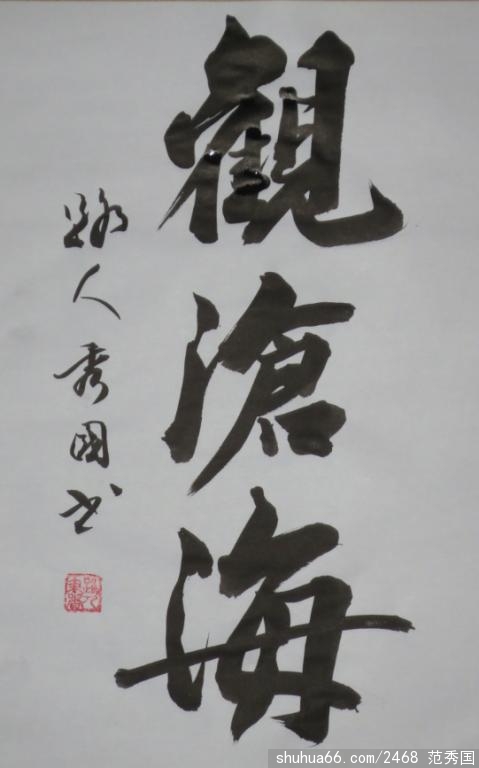 觀滄海
路人秀國书
shuhua66.com/2468 范秀国